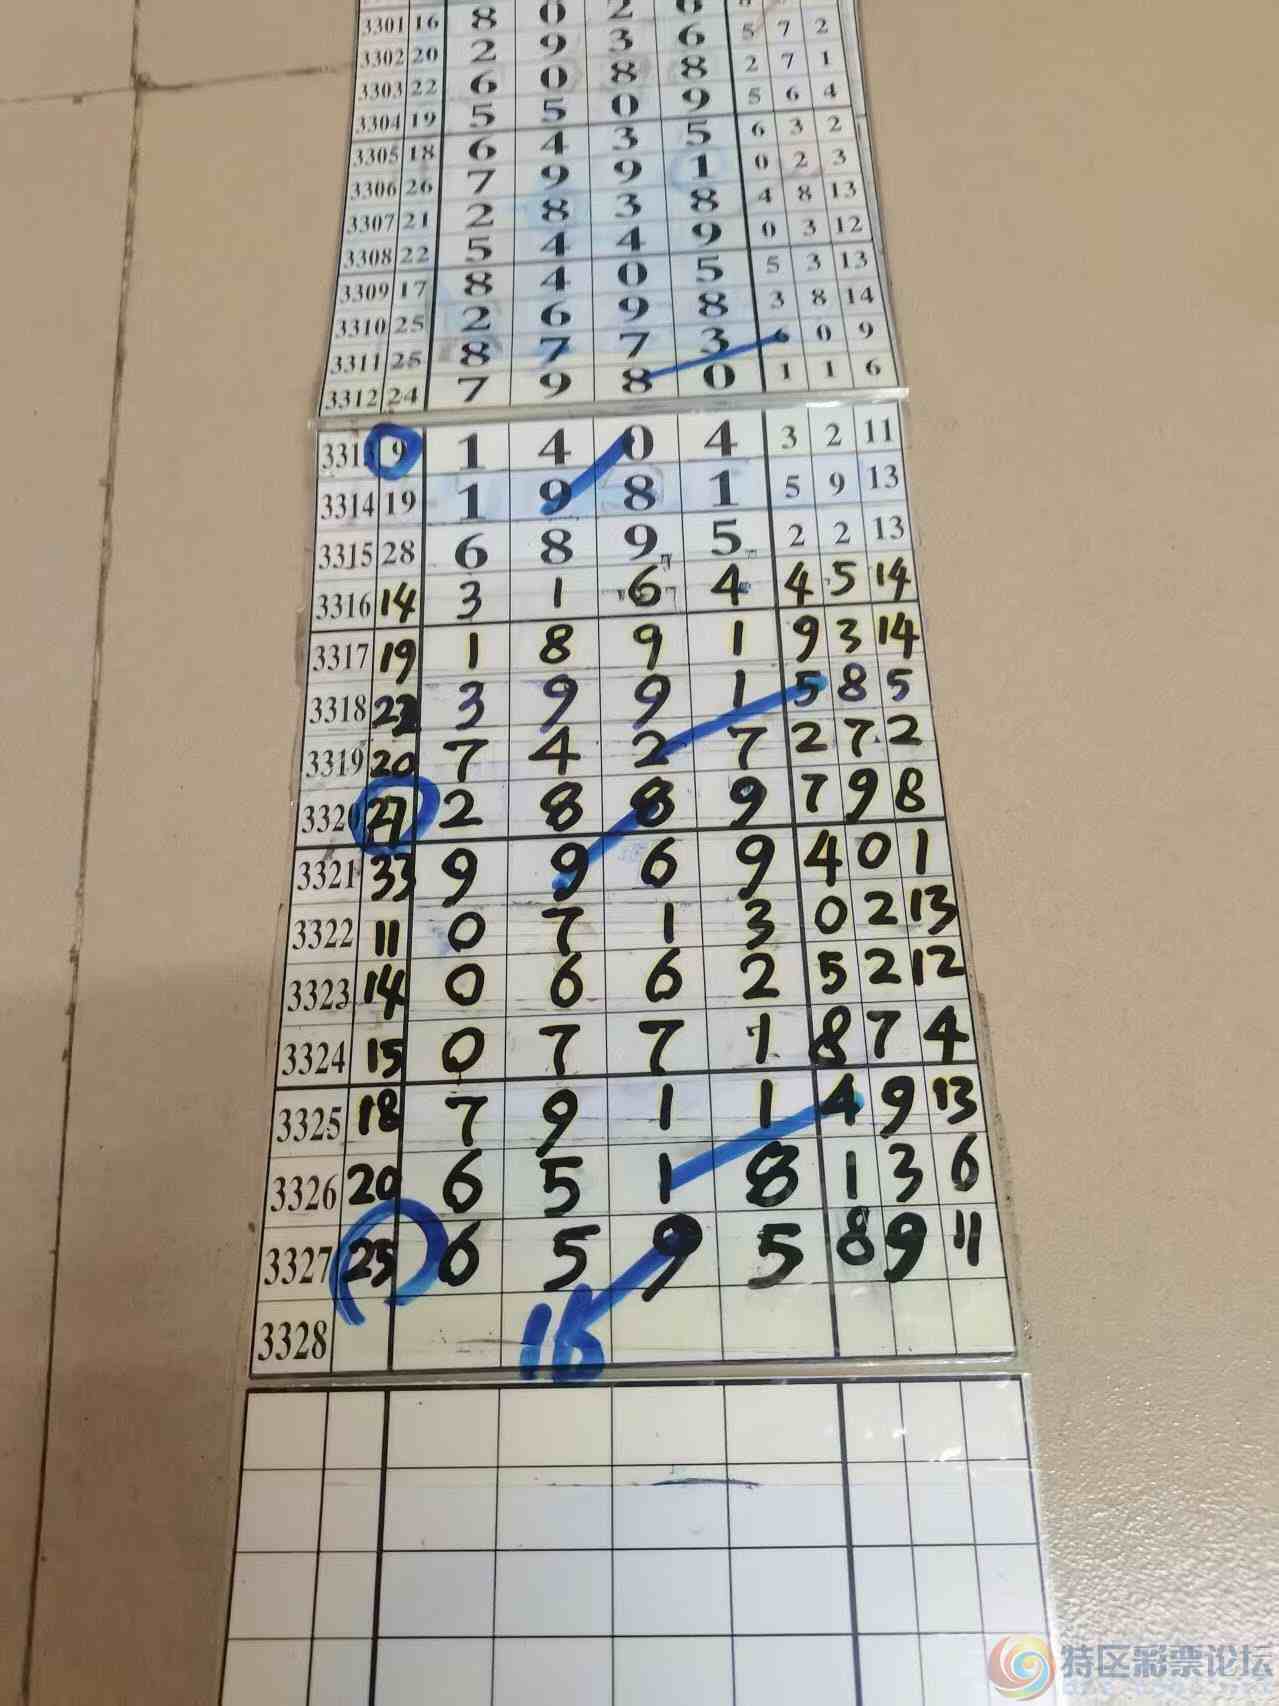 3301 16 8 0 2 6 5 7 2
3302 20 2 9 3 6 2 7 1
3303 22 6 0 8 8 5 6 4
3304 19 5 5 0 9 6 3 2
3305 18 6 4 3 5 0 2 3
3306 26 7 9 9 1 4 8 13
3307 21 2 8 3 8 0 3 12
3308 22 5 4 4 9 5 3 13
3309 17 8 4 0 5 3 8 14
3310 25 2 6 9 8 6 0 9
3311 25 8 7 7 3 1 1 6
3312 24 7 9 8 0
3313 9 1 4 0 4 3 2 11
3314 19 1 9 8 1 5 9 13
3315 28 6 8 9 5 2 2 13
3316 14 3 1 6 4 4 5 14
3317 19 1 8 9 1 9 3 14
3318 22 3 9 9 1 5 8 5
3319 20 7 4 2 7 2 7 2
3320 27 2 8 8 9 7 9 8
3321 33 9 9 6 9 4 0 1
3322 11 0 7 1 3 0 2 13
3323 14 0 6 6 2 5 2 12
3324 15 0 7 7 1 8 7 4
3325 18 7 9 1 1 4 9 13
3326 20 6 5 1 8 1 3 6
3327 25 6 5 9 5 8 9 11
3328 16
特区彩票论坛